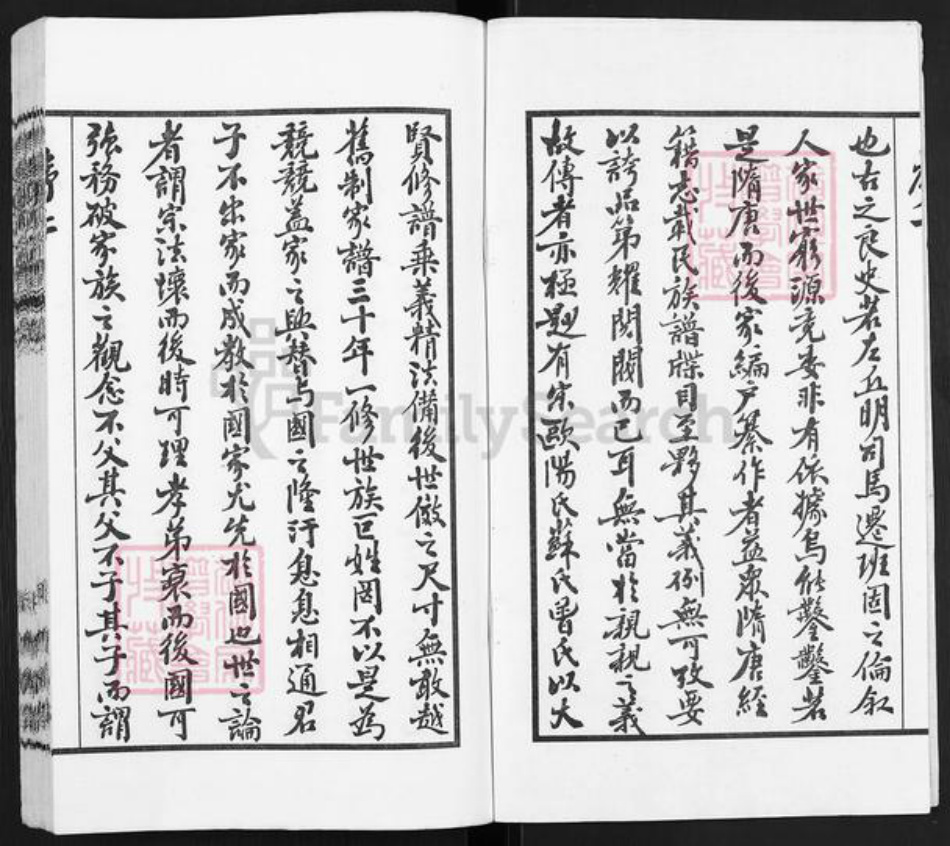 也古之良史若左丘明司馬遷班固之倫叙
人家世窮源竟委非有依據烏能鑿鑿若
是隋唐而後家編戶纂作者益衆隋唐經
籍志載氏族譜牒目至夥其義例無可攷要
以誇品第耀閥閱而已耳無當於親親之義
故傳者亦極尟有宋歐陽氏蘇氏曾氏以大
賢修譜乘義精法備後世儆之尺寸無敢越
舊制家譜三十年一修世族巨姓罔不以是為
競競蓋家之興替與國之隆汙息息相通君
子不出家而成教於國家尤先於國也世之論
者謂宗法壞而後時可理孝弟衰而後國可
強務破家族之觀念不父其父不子其子而謂
FamilySearch